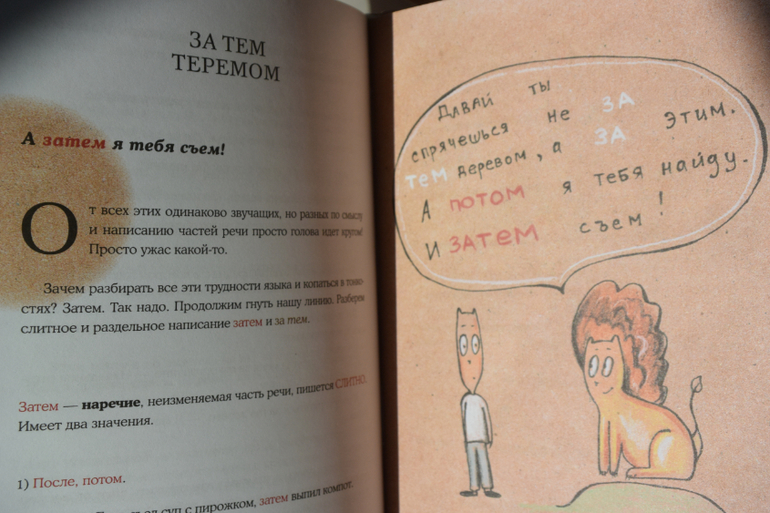 ЗА ТЕМ
ТЕРЕМОМ
А затем я тебя съем!
От всех этих одинаково звучащих, но разных по смыслу
и написанию частей речи просто голова идет кругом!
Просто ужас какой-то.
Зачем разбирать все эти трудности языка и копаться в тонко-
стях? Затем. Так надо. Продолжим гнуть нашу линию. Разберем
слитное и раздельное написание затем и за тем.
Затем — наречие, неизменяемая часть речи, пишется СЛИТНО.
Имеет два значения.
1) После, потом.
суп с пирожком, затем выпил компот.
ДАВАЙ ТЫ
спрячешься не ЗА
тем деревом, а ЗА этим.
А потом я тебя найду.
И ЗАТЕМ съем!